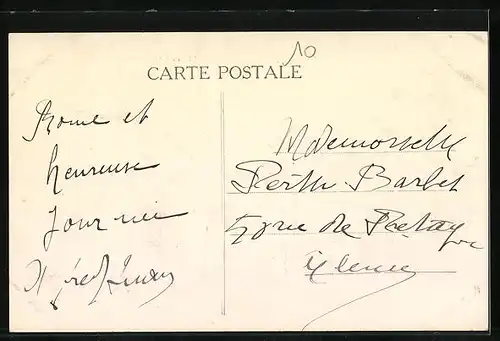 10
CARTE POSTALE
Bonne et
heureuse
journée
Mademoiselle
Berthe Barbet
5 rue de Bretagne